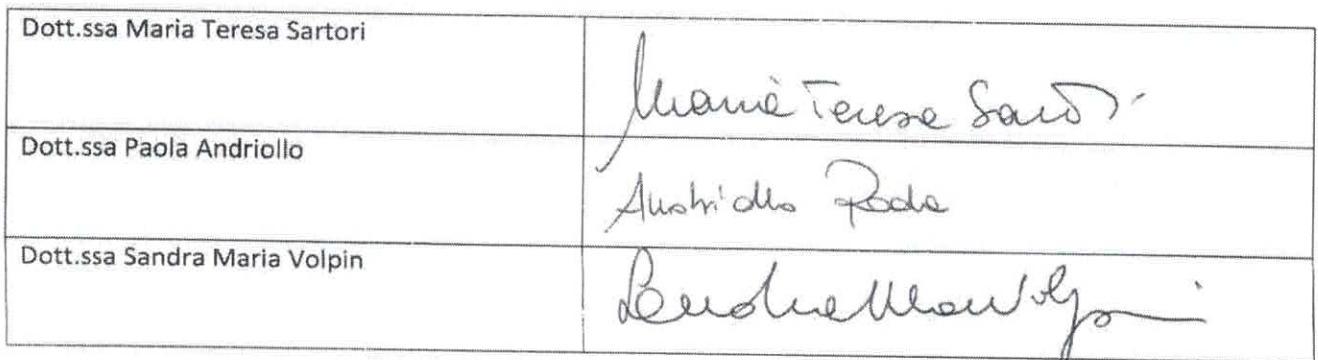 Dott.ssa Maria Teresa Sartori
Maria Teresa Sartori
Dott.ssa Paola Andriollo
Andriollo Paola
Dott.ssa Sandra Maria Volpin
Sandra Maria Volpin